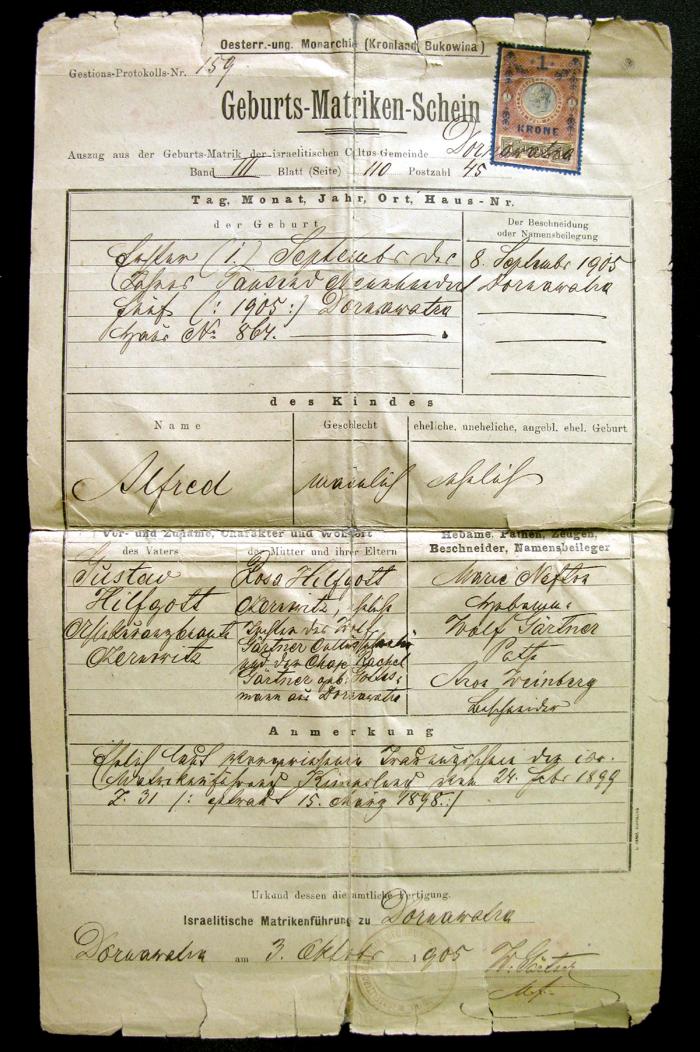 Oesterr.-ung. Monarchie (Kronland Bukowina)
Gestions-Protokolls-Nr. 159
1
KRONE
Geburts-Matriken-Schein
Auszug aus der Geburts-Matrik der israelitischen Cultus-Gemeinde Dornawatra
Band III Blatt (Seite) 110 Postzahl 45
Tag, Monat, Jahr, Ort, Haus-Nr.
der Geburt
Der Beschneidung
oder Namensbeilegung
Ersten (1.) September des
Jahres Tausend Neunhundert
fünf (: 1905 :) Dornawatra
Haus No 864.
8. September 1905
Dornawatra
des Kindes
Name
Geschlecht
eheliche, uneheliche, angebl. ehel. Geburt
Alfred
männlich
ehelich
Vor- und Zuname, Charakter und Wohnort
des Vaters
der Mutter und ihrer Eltern
Hebame, Pathen, Zeugen,
Beschneider, Namensbeileger
Gustav
Hilfgott
Assekuranzbeamte
Czernowitz
Rosa Hilfgott
Czernowitz, eheliche
Tochter des Wolf
Gärtner
und der Chaje Rachel
Gärtner geb.
mann aus Dornawatra
Marie
Hebamme
Wolf Gärtner
Pathe
Aron Weinberg
Beschneider
Anmerkung
Ehelich laut vorgewiesenem Trauungsschein der isr.
Matrikenführung Kimpolung vom 24. Febr 1899
Z. 31 (: getraut 15. März 1898 :)
Urkund dessen die amtliche Fertigung.
Israelitische Matrikenführung zu Dornawatra
Dornawatra am 3. Oktober 1905
W. Gärtner
Mf.